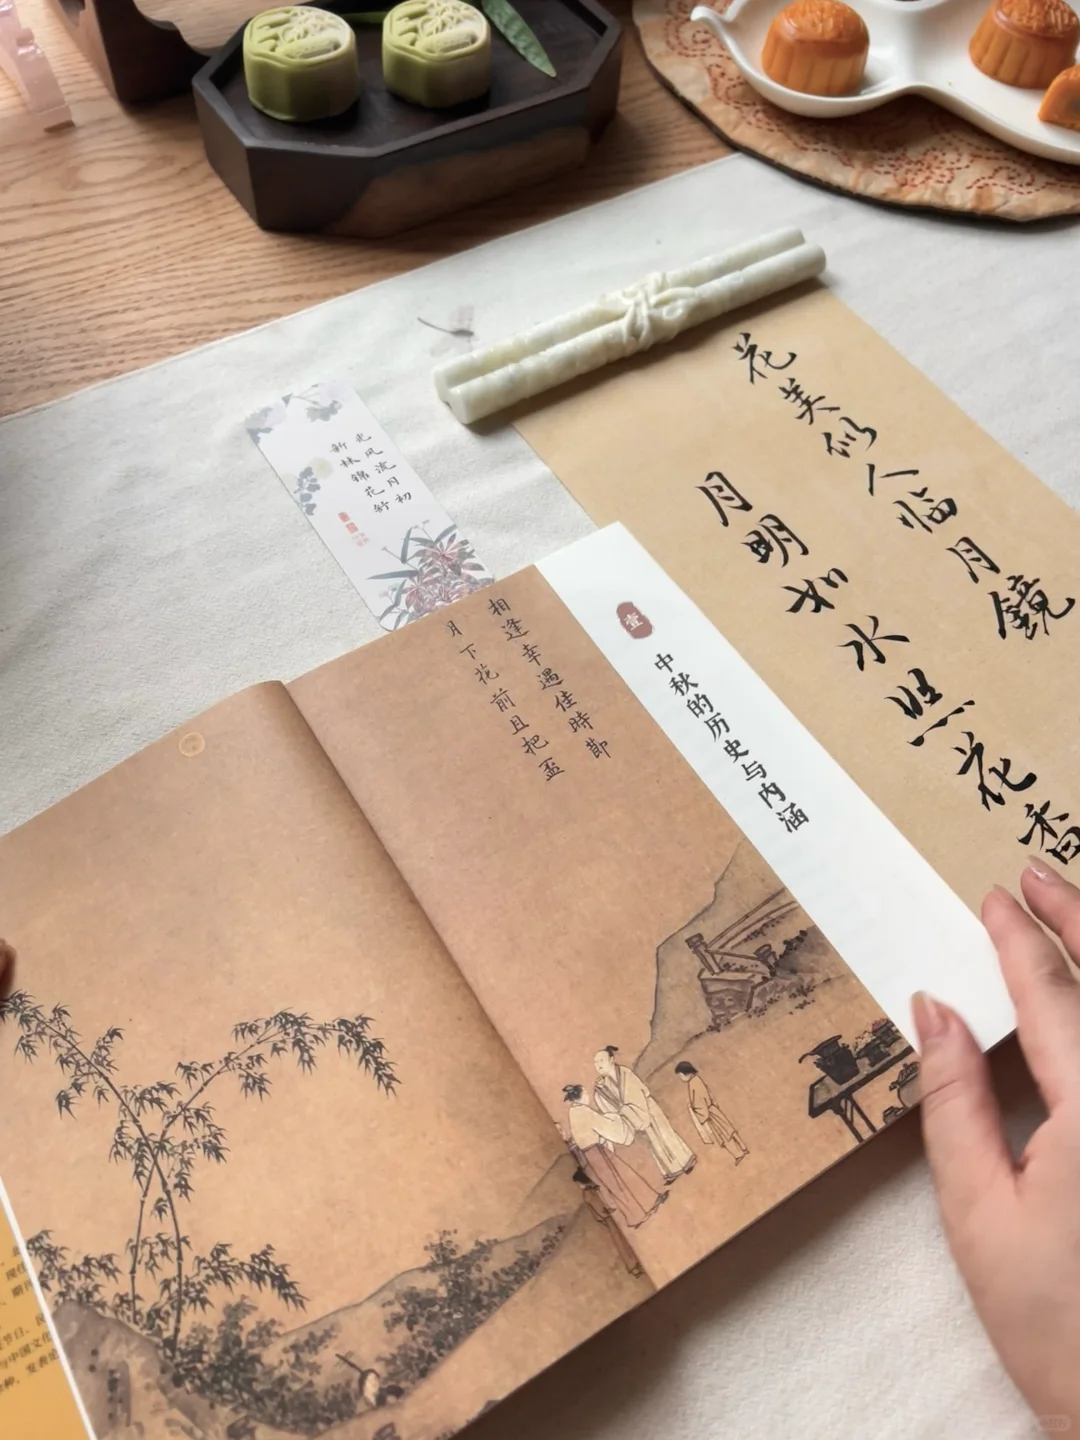 花美似人临月鏡
月明如水照花香
北风流月初
新林锦花新
壹
中秋的历史与内涵
相逢幸遇佳時節
月下花前且把盃